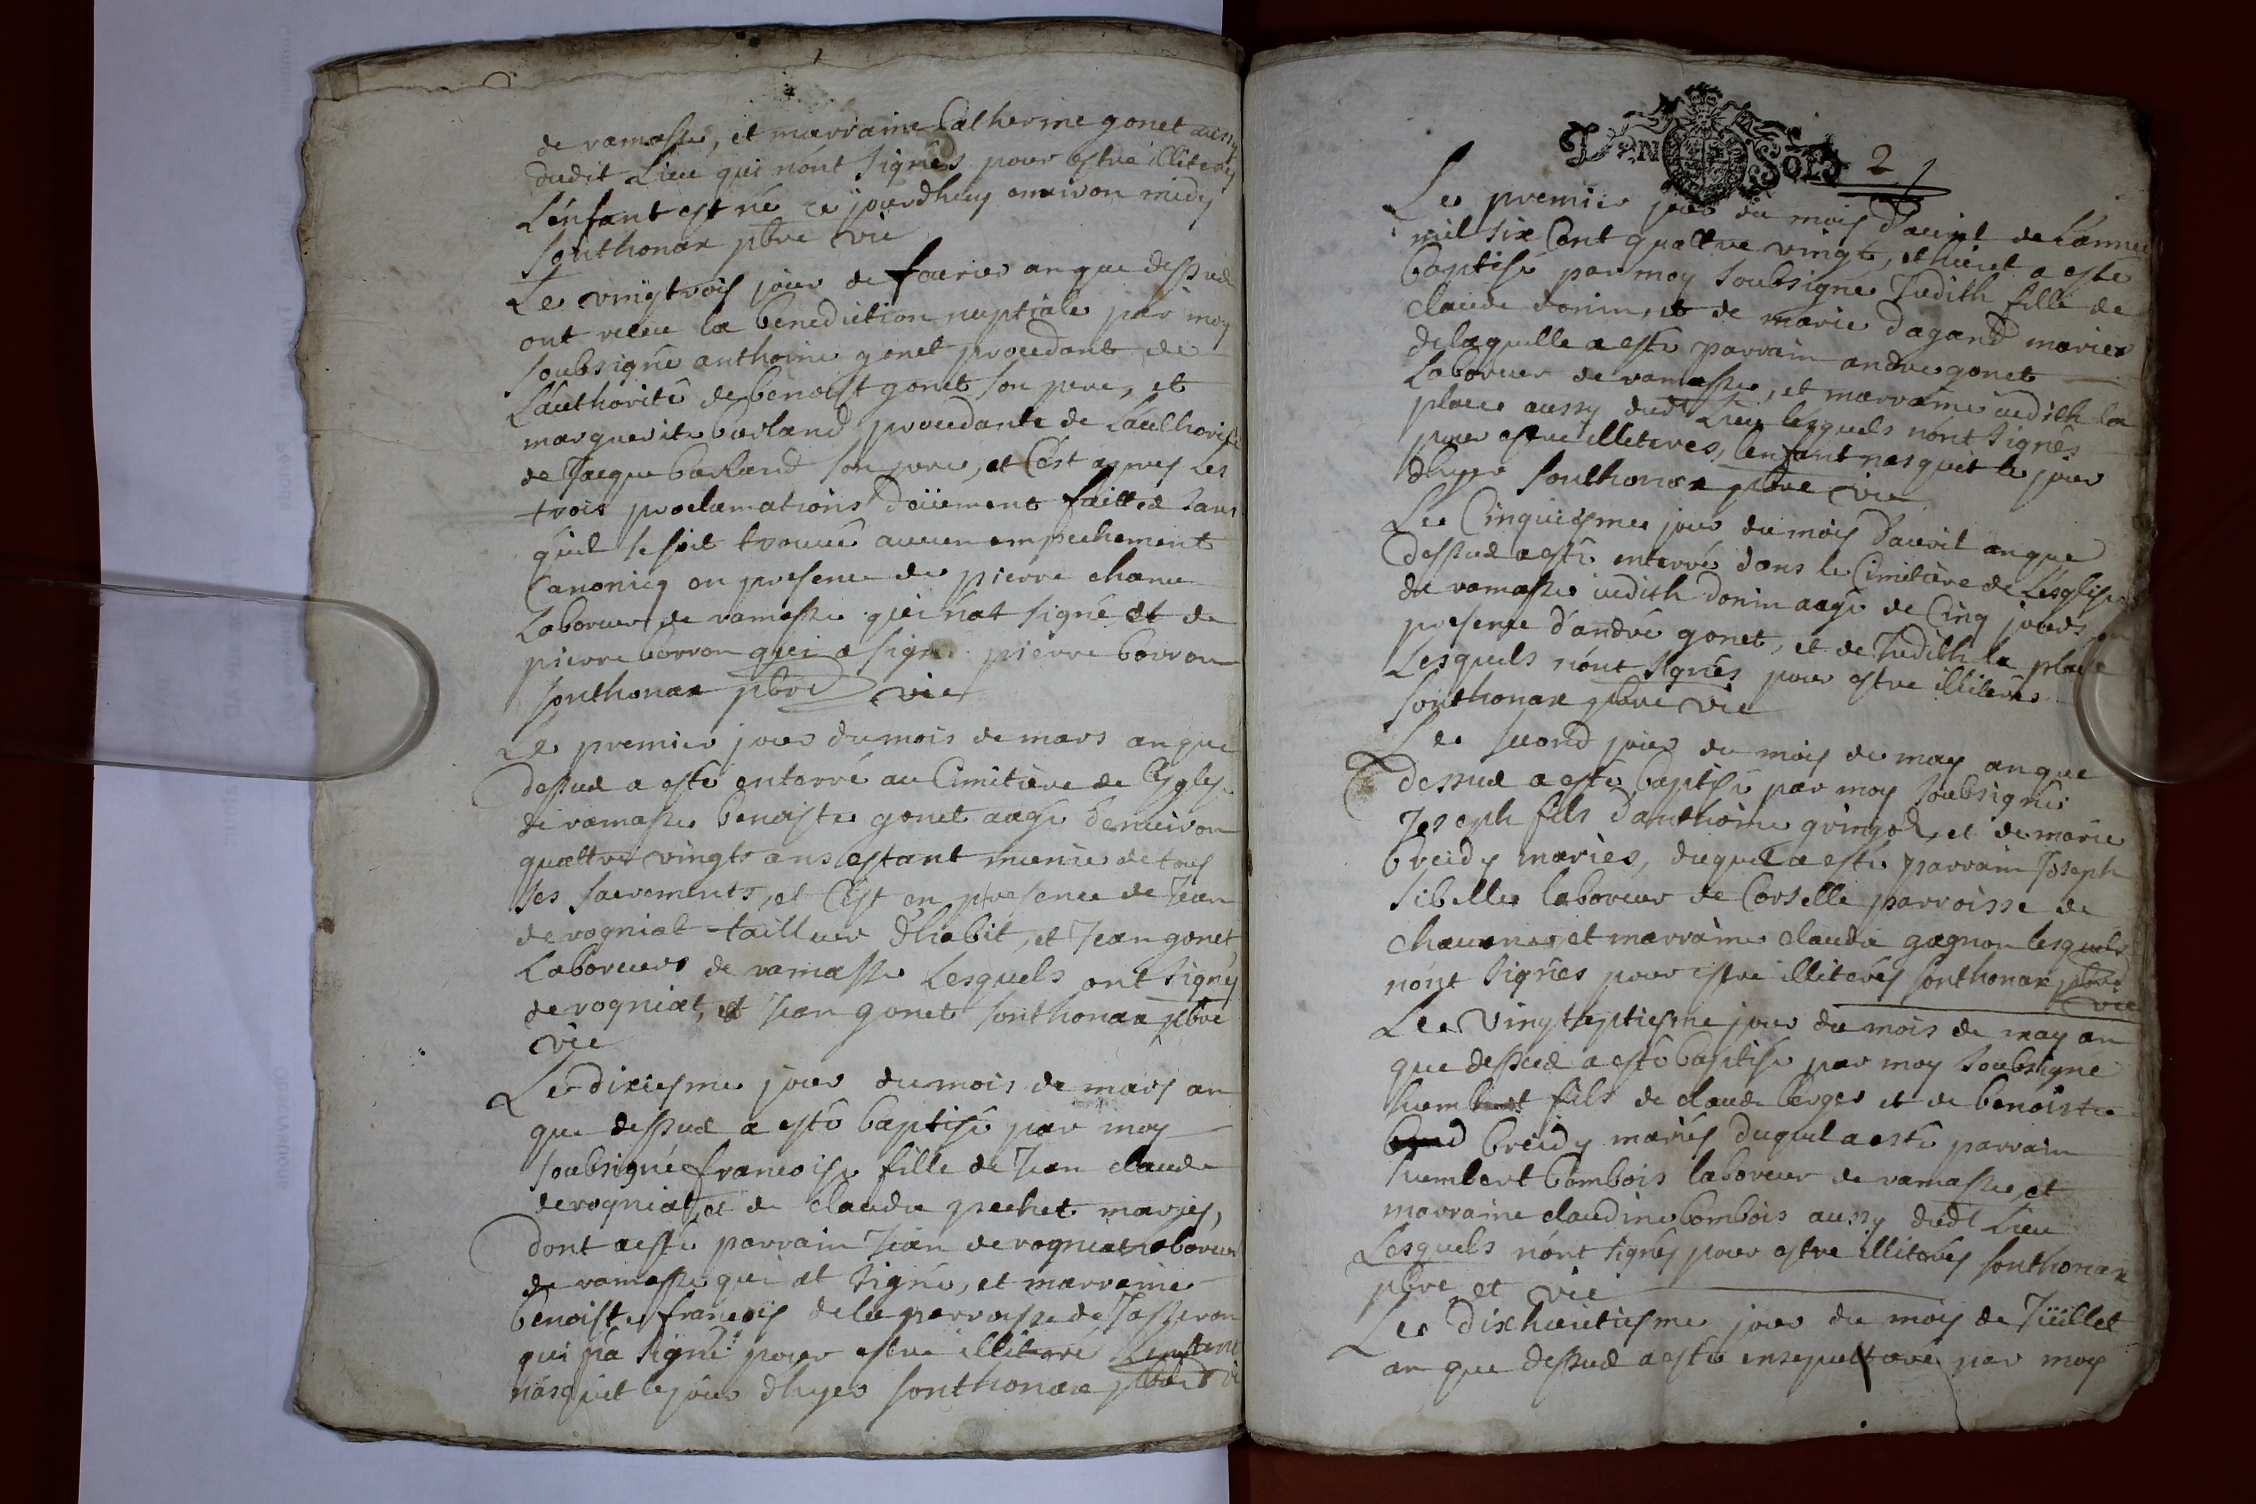 de ramasse, et marraine Catherine gonet aussy
dudit Lieu qui nónt signés pour estre illiteréz
Lénfant est né ce jourdhuy enuiron midy
Sonthonax pbre vic
Le vingtrois jour de feurier an que dessus
ont receu la benediction nuptiale par moy
soubsigné anthoine gonet procedant de
L'authorité de benoist gonet son pere, et
marguerite borland procedante de Lauthorité
de Jacque borland son pere, et Cést apres Les
trois proclamations deüement faittes sans
quil se soit trouué aucun empechement
Canonicq en presence de pierre chanu
Laboreur de ramasse qui nat signé et de
pierre borron qui a signé pierre borron
Sonthonax pbre vic
Le premier jour du mois de mars an que
dessus a esté enterré au Cimitiere de L'églis
de ramasse benoiste gonet aagé denuiron
quattre vingts ans estant munie de tous
ses sacrements, et Cést en presence de Jean
derogniat tailleur dhabit, et Jean gonet
Laboreurs de ramasse Lesquels ont signéz
derogniat, et Jean gonet Sonthonax pbre
vic
Le dixiesme jour du mois de mars an
que dessus a esté baptisé par moy
soubsigné francoise fille de Jean claude
derogniat, et de claudie pechet mariés,
dont a esté parrain Jean derogniat laboreur
de ramasse qui at signé, et marraine
benoiste francois de la parroisse de Jasseron
qui na signé pour estre illiteré
násquit le jour dhyer Sonthonax pbre vi
Den Sols
2
Le premier jour du mois dauril de Lannee
mil six Cent quattre vingt, et huict a esté
baptisé par moy soubsigné Judith fille de
claude donin, et de marie dagand mariez
delaquelle a esté parrain andre gonet
Laboreur de ramasse, et marraine iudith la
place aussy dudt Lieu lesquels nónt signés
pour estre illiteres, lenfant nasquit le jour
dhyer Sonthonax pbre vic
Le Cinquiesme jour du mois dauril an que
dessus a esté enterré dans le Cimitiere de L'église
de ramasse iudith donin aagé de Cinq jours en
presence d'andré gonet, et de Judith la place
Lesquels nónt signés pour estre illiterés
Sonthonax pbre vic
Le second jour du mois de may an que
dessus a esté baptisé par moy soubsigné
Joseph fils danthoine gringoz, et de marie
breidy mariés, duquel a esté parrain Joseph
sibelle laboreur de Corselle parroisse de
chauanes et marraine claudie gagnon lesquels
nónt signés pour estre illiteréz Sonthonax pbre
vic
Le Vingtseptiesme jour du mois de may an
que dessus a esté baptisé par moy soubsigné
humbert fils de claude berger et de benoiste
breidy mariés duquel a esté parrain
humbert bombois laboreur de ramasse, et
marraine claudine bombois aussy dudt Lieu
Lesquels nónt signés pour estre illiteréz Sonthonax
pbre et vic
Le dixhuictiesme jour du mois de Jüillet
an que dessus a esté ensepulturé par moy